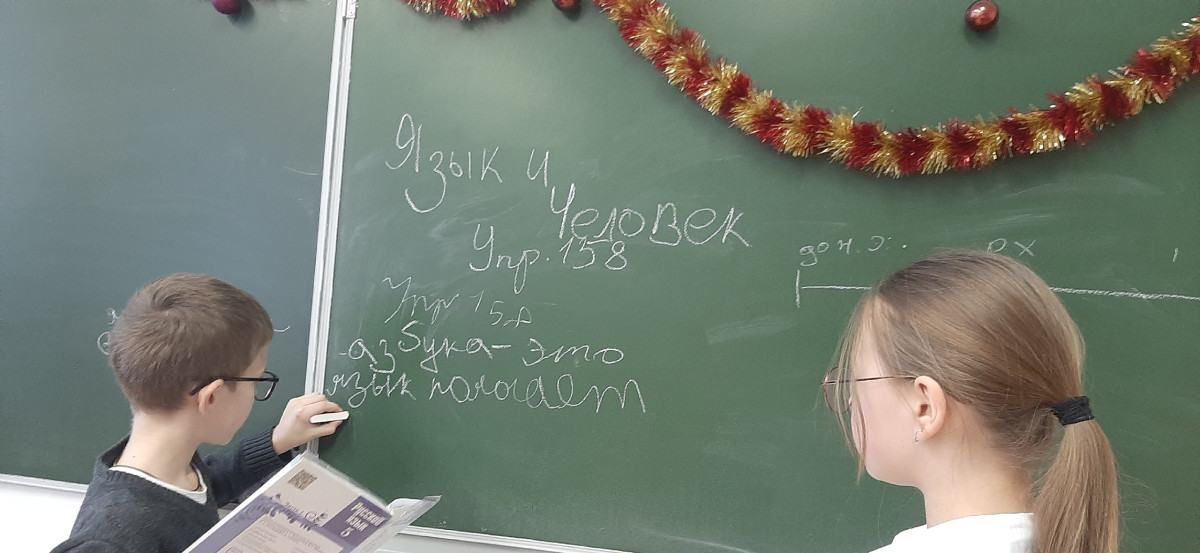 Язык и
Человек
Упр. 158
Упр 158
азбука - это
язык помогает
РУССКИЙ
ЯЗЫК
5